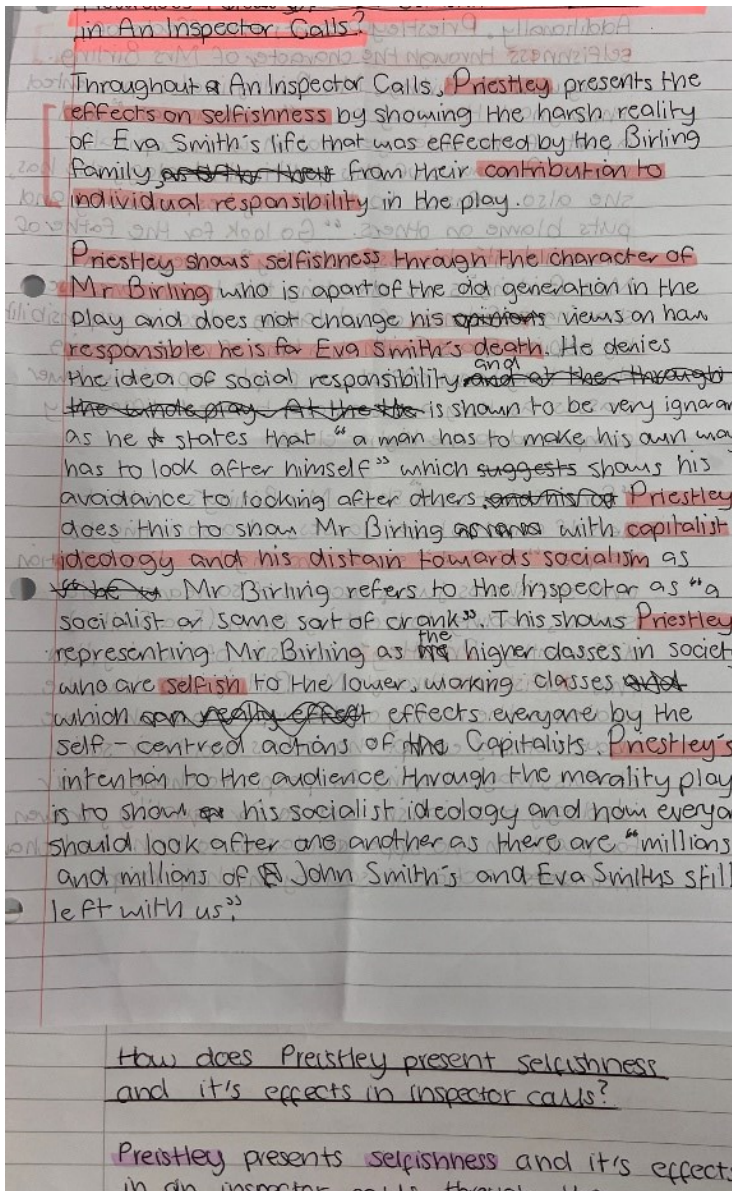 in An Inspector Calls?
Throughout An Inspector Calls, Priestley presents the
effects on selfishness by showing the harsh reality
of Eva Smith's life that was effected by the Birling
family, from their contribution to
individual responsibility in the play.
Priestley shows selfishness through the character of
Mr Birling who is apart of the old generation in the
play and does not change his opinions views on how
responsible he is for Eva Smith's death. He denies
and
the idea of social responsibility and at the through
the whole play. At the the is shown to be very ignoran
as he states that "a man has to make his own way
has to look after himself" which suggests shows his
avoidance to looking after others. and his Priestley
does this to show Mr Birling with capitalist
ideology and his distain towards socialism as
Mr Birling refers to the Inspector as "a
socialist or some sort of crank". This shows Priestley
the
representing Mr Birling as higher classes in societ
who are selfish to the lower, working classes
which can really effect effects everyone by the
self-centred actions of the Capitalists. Priestley's
intention to the audience through the morality play
is to show his socialist ideology and how everyo
should look after one another as there are "millions
and millions of John Smith's and Eva Smiths still
left with us".
How does Preistley present selfishness
and it's effects in inspector calls?
Preistley presents selfishness and it's effects
in an inspector calls through